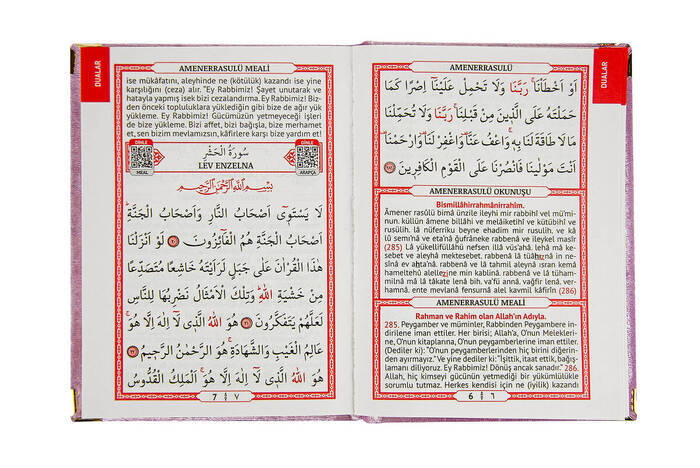 DUALAR
AMENERRASULÜ
اَوْ اَخْطَأْنَاۚ رَبَّنَا وَلَا تَحْمِلْ عَلَيْنَٓا اِصْرًا كَمَا
حَمَلْتَهُ عَلَى الَّذٖينَ مِنْ قَبْلِنَاۚ رَبَّنَا وَلَا تُحَمِّلْنَا
مَا لَا طَاقَةَ لَنَا بِهٖۚ وَاعْفُ عَنَّا۠ وَاغْفِرْ لَنَا۠ وَارْحَمْنَا۠
اَنْتَ مَوْلٰينَا فَانْصُرْنَا عَلَى الْقَوْمِ الْكَافِرٖينَ
AMENERRASULÜ OKUNUŞU
Bismillâhirrahmânirrahîm.
Âmener rasûlü bimâ ünzile ileyhi mir rabbihî vel mü'mi-
nûn, küllün âmene billâhi ve melâiketihî ve kütübihî ve
rusulih. lâ nüferriku beyne ehadim mir rusulih, ve kâ
lû semi'nâ ve eta'nâ ğufrâneke rabbenâ ve ileykel masîr
(285) Lâ yükellifüllâhü nefsen illâ vüs'ahâ. lehâ mâ ke-
sebet ve aleyhâ mektesebet. rabbenâ lâ tüâhıznâ in ne-
sînâ ev ahta'nâ. rabbenâ ve lâ tahmil aleynâ ısran kemâ
hameltehû alellezîne min kablinâ. rabbenâ ve lâ tüham-
milnâ mâ lâ tâkate lenâ bih, va'fü annâ, vağfir lenâ, ver-
hamnâ, ente mevlânâ fensurnâ alel kavmil kâfirîn (286)
AMENERRASULÜ MEALİ
Rahman ve Rahim olan Allah'ın Adıyla.
285. Peygamber ve müminler, Rabbinden Peygambere in-
dirilene iman ettiler. Her birisi; Allah'a, O'nun Melekleri-
ne, O'nun kitaplarına, O'nun peygamberlerine iman ettiler.
(Dediler ki): "O'nun peygamberlerinden hiç birini diğerin-
den ayırmayız." Ve yine dediler ki: "İşittik, itaat ettik, bağış-
lamanı diliyoruz. Ey Rabbimiz! Dönüş ancak sanadır." 286.
Allah, hiç kimseyi gücünün yetmediği bir yükümlülükle
sorumlu tutmaz. Herkes kendisi için ne (iyilik) kazandı
6 ٦
DUALAR
AMENERRASULÜ MEALİ
ise mükâfatını, aleyhinde ne (kötülük) kazandı ise yine
karşılığını (ceza) alır. "Ey Rabbimiz! Şayet unutarak ve
hatayla yapmış isek bizi cezalandırma. Ey Rabbimiz! Biz-
den önceki topluluklara yüklediğin gibi bize de ağır yük
yükleme. Ey Rabbimiz! Gücümüzün yetmeyeceği işleri
de bize yükleme. Bizi affet, bizi bağışla, bize merhamet
et, sen bizim mevlamızsın, kâfirlere karşı bize yardım et!
DİNLE
MEAL
سُورَةُ الْحَشْرِ
LEV ENZELNA
DİNLE
ARAPÇA
بِسْمِ اللّٰهِ الرَّحْمٰنِ الرَّحٖيمِ
لَا يَسْتَوٖٓى اَصْحَابُ النَّارِ وَاَصْحَابُ الْجَنَّةِؕ
اَصْحَابُ الْجَنَّةِ هُمُ الْفَٓائِزُونَ ﴿٢٠﴾ لَوْ اَنْزَلْنَا
هٰذَا الْقُرْاٰنَ عَلٰى جَبَلٍ لَرَاَيْتَهُ خَاشِعًا مُتَصَدِّعًا
مِنْ خَشْيَةِ اللّٰهِؕ وَتِلْكَ الْاَمْثَالُ نَضْرِبُهَا لِلنَّاسِ
لَعَلَّهُمْ يَتَفَكَّرُونَ ﴿٢١﴾ هُوَ اللّٰهُ الَّذٖى لَٓا اِلٰهَ اِلَّا هُوَۚ
عَالِمُ الْغَيْبِ وَالشَّهَادَةِۚ هُوَ الرَّحْمٰنُ الرَّحٖيمُ ﴿٢٢﴾
هُوَ اللّٰهُ الَّذٖى لَٓا اِلٰهَ اِلَّا هُوَۚ اَلْمَلِكُ الْقُدُّوسُ
7 ٧